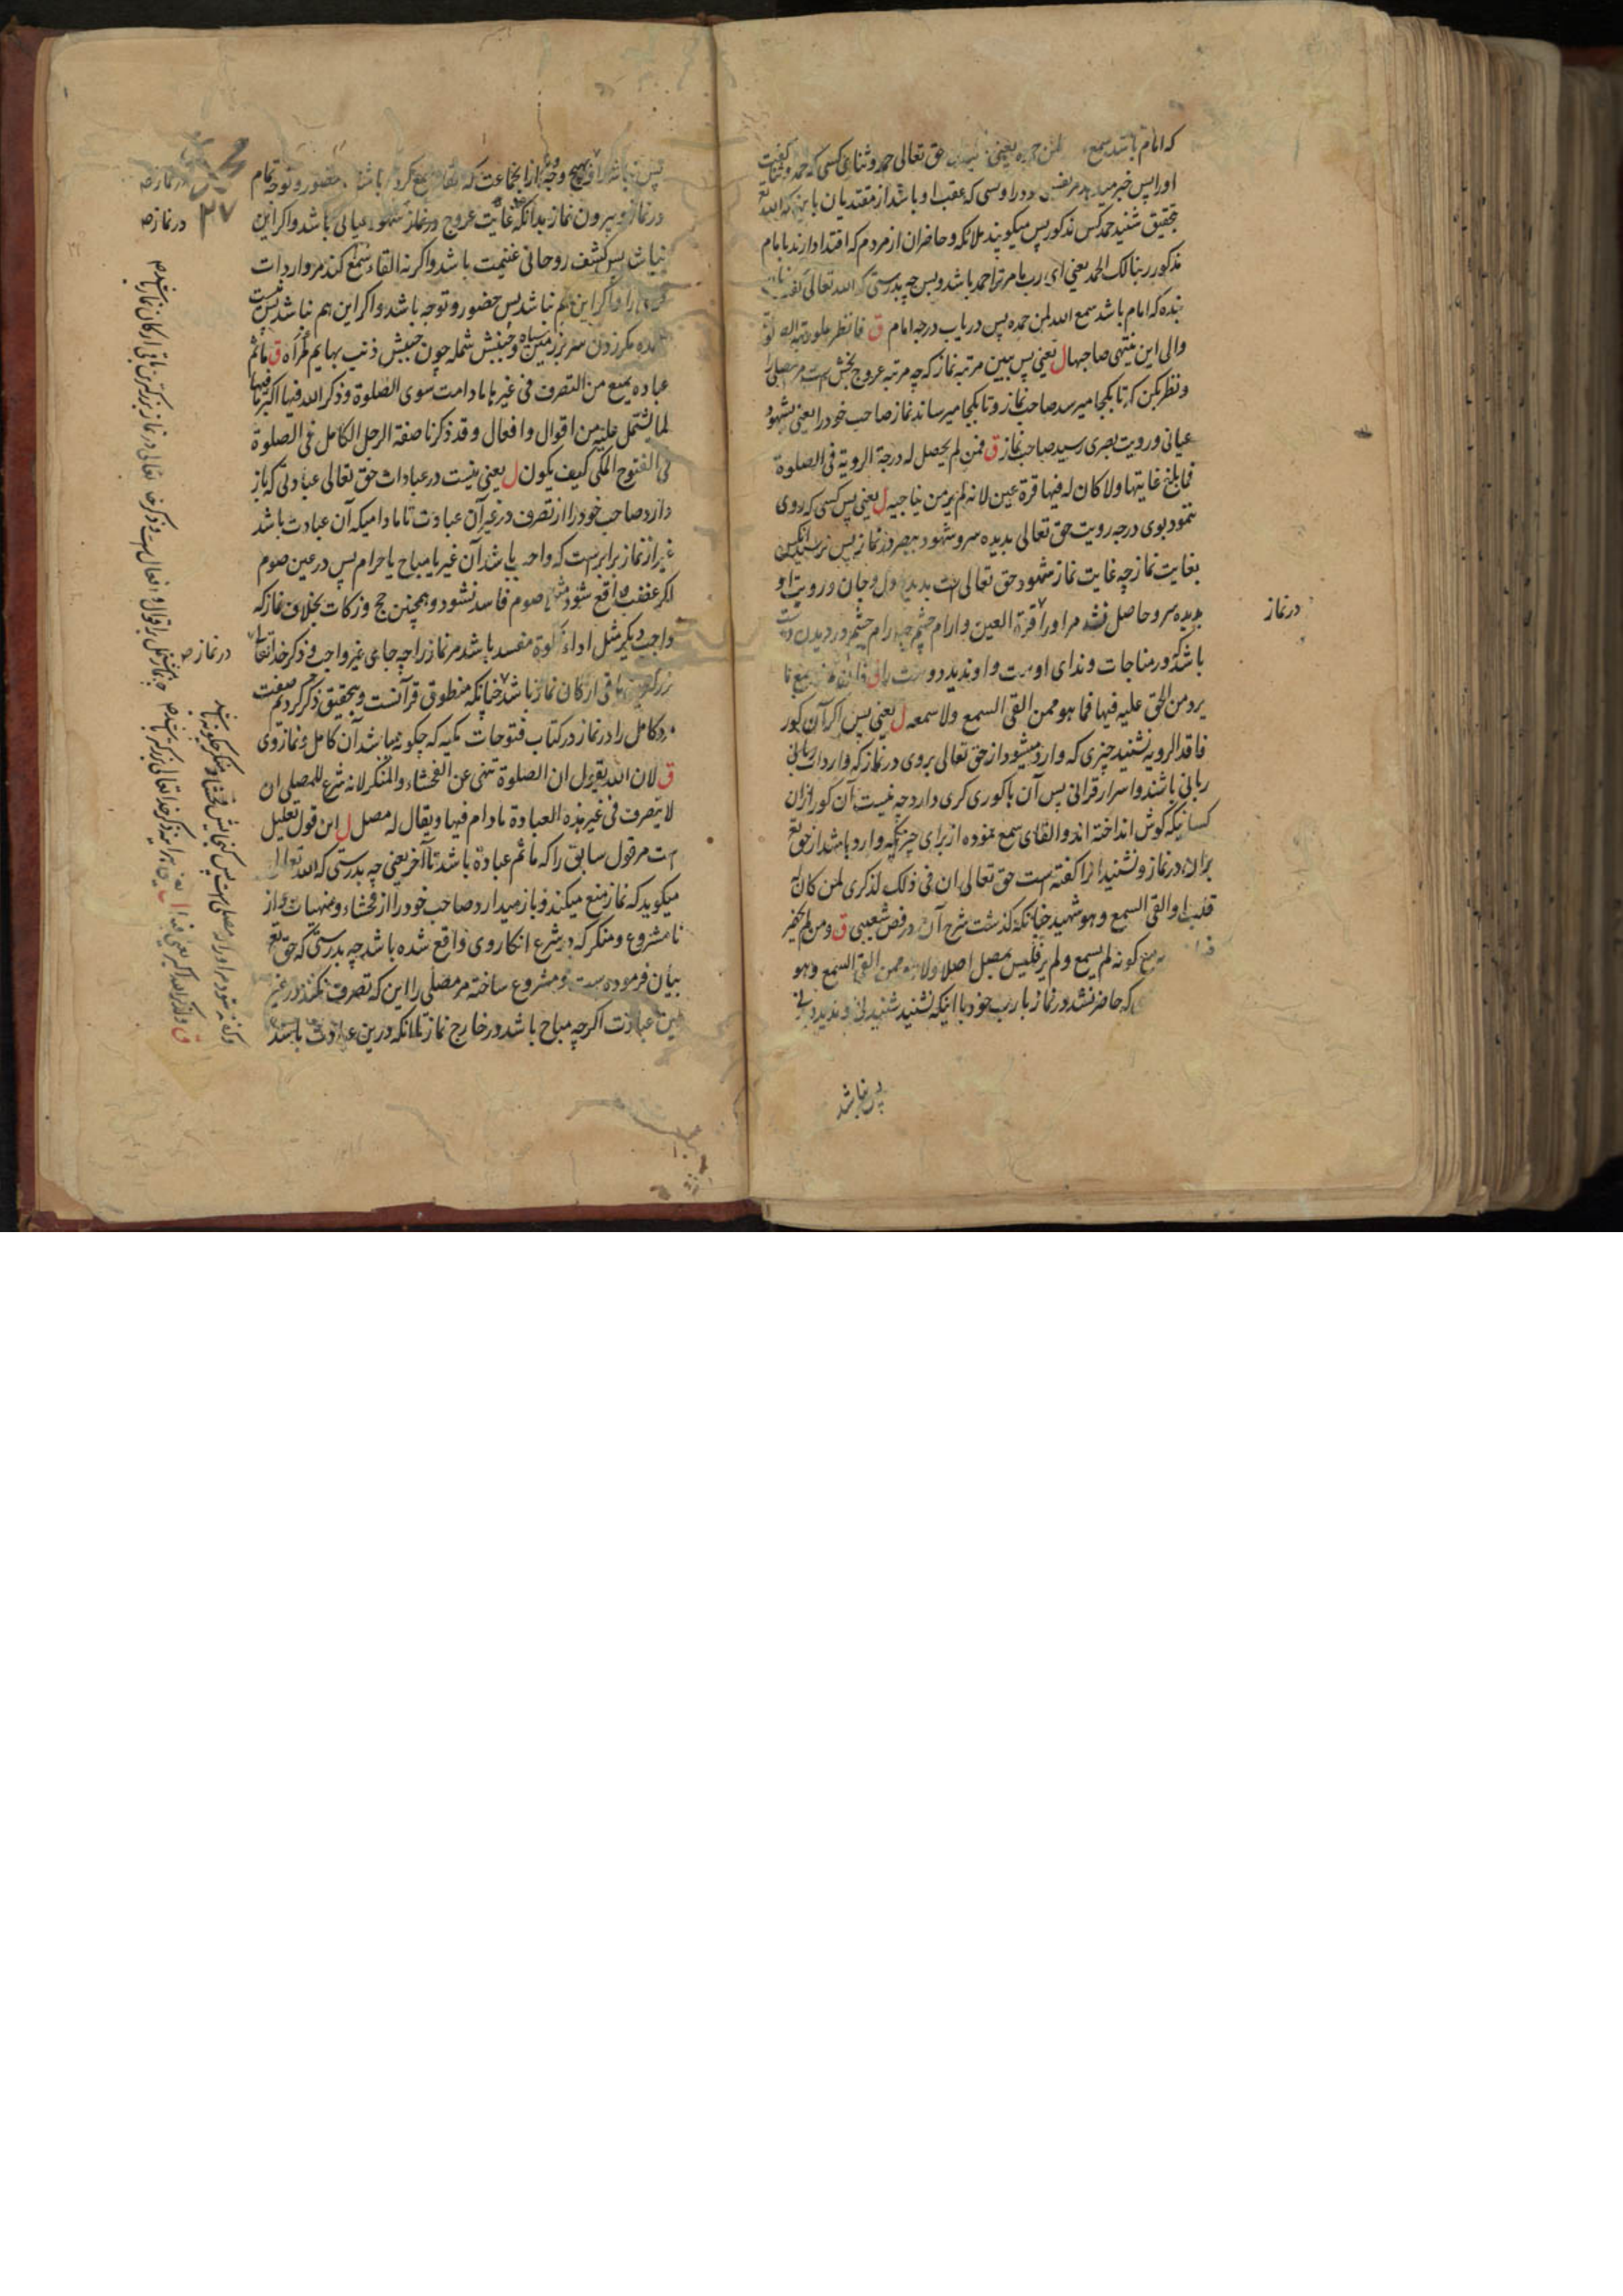 که امام باشد سمع لمن حمده یعنی حق تعالی حمد و ثنای کسی که حمد و ثنا گفت
اورا پس خبر میدهد نفس خود را و کسی که عقب او باشد از مقتدیان باین که الله تع
بتحقیق شنید حمد کس مذکور پس میکویند ملائکه و حاضران از مردم که اقتدا دارند بامام
مذکور ربنا لک الحمد یعنی ای رب ما مر ترا حمد باشد و بس چه بدرستی که الله تعالی گفت
بنده که امام باشد سمع الله لمن حمده پس دریاب درجه امام ق فانظر علو رتبة الصلوة
والی این تنتهی صاحبها ل یعنی پس ببین مرتبه نماز که چه مرتبه عروج بخش است مر مصلی را
و نظر بکن که تا بکجا میرسد صاحب نماز و تا بکجا میرساند نماز صاحب خود را یعنی بشهود
عیانی و رویت بصری رسید صاحب نماز ق فمن لم یحصل له درجة الرویة فی الصلوة
فما بلغ غایتها ولا کان له فیها قرة عین لانه لم یر من یناجیه ل یعنی پس کسی که روی
ننمود بوی درجه رویت حق تعالی بدیده سر و شهود ببصر در نماز پس نرسید آنکس
بغایت نماز چه غایت نماز شهود حق تعالی است بدیده دل و جان و رویت او
بدیده سر و حاصل نشد مر اورا قرة العین و ارام چشم چه ارام چشم در دیدن دوست
باشد که در مناجات و ندای اوست و او ندید دوست را ق فان لم یسمع ما
یرد من الحق علیه فیها فما هو ممن القی السمع ولا سمعه ل یعنی پس اگر آن کور
فاقد الرویه نشنید چیزی که وارد میشود از حق تعالی بروی در نماز که واردات ربانی
ربانی باشند و اسرار قرآنی پس آن با کوری کری دارد چه نیست آن کور ازان
کسانیکه کوش انداخته اند و القای سمع نموده از برای چیزیکه وارد باشد از حق تع
بران در نماز و نشنید انرا گفته است حق تعالی ان فی ذلک لذکری لمن کان له
قلب او القی السمع و هو شهید چنانکه گذشت شرح آن در فص شعیبی ق و من لم یحضر
فیها مع ربه مع کونه لم یسمع و لم یر فلیس بمصل اصلا ولا هو ممن القی السمع و هو
که حاضر نشد در نماز با رب خود با اینکه نشنید شنیدنی و ندید دیدنی
پس نباشد
در نماز
پس نباشد او بهیچ وجه از انجماعت که القاء سمع کرده باشد حضور و توجه تمام
در نماز و بیرون نماز بدانکه غایت عروج در نماز شهود عیانی باشد و اگر این
نباشد پس کشف روحانی غنیمت باشد و اگر نه القاء سمع کند مر واردات
را و اگر این هم نباشد پس حضور و توجه باشد و اگر این هم نباشد پس نیست
مگر زدن سر بر زمین سیاه و جنبش شمله چون جنبش ذنب بهایم ق ما ثم
عبادة یمنع من التصرف فی غیرها مادامت سوی الصلوة و ذکر الله فیها اکبر ما فیها
لما تشتمل علیه من اقوال و افعال و قد ذکرنا صفة الرجل الکامل فی الصلوة
فی الفتوح المکی کیف یکون ل یعنی نیست در عبادات حق تعالی عبادتی که باز
دارد صاحب خود را از تصرف در غیر آن عبادت تا مادامیکه آن عبادت باشد
غیر از نماز برابرست که واجب باشد آن غیر یا مباح یا حرام پس در عین صوم
اگر غضب واقع شود مثلا صوم فاسد نشود و همچنین حج و زکات بخلاف نماز که
واجب دیگر مثل اداء زکوة مفسد باشد مر نماز را چه جای غیر واجب و ذکر خدا تعالی
بزرگترین باقی ارکان نماز باشد چنانکه منطوق قرآنست و بتحقیق ذکر کردیم صفت
مرد کامل را در نماز در کتاب فتوحات مکیه که چگونه میباشد آن کامل در نماز وی
ق لان الله یقول ان الصلوة تنهی عن الفحشاء و المنکر لانه شرع للمصلی ان
لا یتصرف فی غیر هذه العبادة مادام فیها و یقال له مصل ل این قول تعلیل
است مر قول سابق را که ما ثم عبادة باشد تا آخر یعنی چه بدرستی که الله تعالی
میکوید که نماز منع میکند و باز میدارد صاحب خود را از فحشاء و منهیات و از
نا مشروع و منکر که در شرع انکار وی واقع شده باشد چه بدرستی که حق تع
بیان فرموده است و مشروع ساخته مر مصلی را این که تصرف نکند در غیر
این عبادت اگرچه مباح باشد در خارج نماز مادامکه درین عبادت باشد
در نماز صح
۳۷
در نماز صح
در نماز صح
ق و لذکر الله اکبر یعنی فیها ل یعنی هر آینه ذکر خدا تعالی بزرگتر باشد